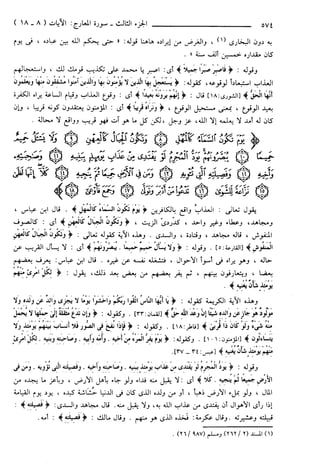 ٥٧٤ الجزء الثالث ـ سورة المعارج: الآيات ( ٨ ـ ١٨ )
به دون البخاري (١)، والغرض من إيراده هاهنا قوله: « حتى يحكم الله بين عباده ، في يوم
كان مقداره خمسين ألف سنة » .
وقوله : ﴿ فاصبر صبرا جميلا ﴾ أي: اصبر يا محمد على تكذيب قومك لك ، واستعجالهم
العذاب استبعادا لوقوعه، كقوله: ﴿ يستعجل بها الذين لا يؤمنون بها والذين آمنوا مشفقون منها ويعلمون
أنها الحق ﴾ [الشورى:١٨] قال: ﴿ إنهم يرونه بعيدا ﴾ أي : وقوع العذاب وقيام الساعة يراه الكفرة
بعيد الوقوع ، بمعنى مستحيل الوقوع ، ﴿ ونراه قريبا ﴾ أي : المؤمنون يعتقدون كونه قريبا ، وإن
كان له أمد لا يعلمه إلا الله، عز وجل ،لكن كل ما هو آت فهو قريب وواقع لا محالة .
﴿ يوم تكون السماء كالمهل وتكون الجبال كالعهن ولا يسئل حميم
حميما يبصرونهم يود المجرم لو يفتدى من عذاب يومئذ ببنيه وصاحبته
وأخيه وفصيلته التى تئويه ومن فى الأرض جميعا ثم ينجيه
كلا إنها لظى نزاعة للشوى تدعوا من أدبر وتولى وجمع فأوعى ﴾
يقول تعالى : العذاب واقع بالكافرين ﴿ يوم تكون السماء كالمهل ﴾ . قال ابن عباس ،
ومجاهد، وعطاء وغير واحد ، كدردي الزيت ، ﴿ وتكون الجبال كالعهن ﴾ أي : كالصوف
المنفوش ، قاله مجاهد ، وقتادة ، والسدي . وهذه الآية كقوله تعالى: ﴿ وتكون الجبال كالعهن
المنفوش ﴾ [القارعة:٥] . وقوله: ﴿ ولا يسأل حميم حميما . يبصرونهم ﴾ أي : لا يسأل القريب عن
حاله ، وهو يراه في أسوأ الأحوال ، فتشغله نفسه عن غيره . قال ابن عباس: يعرف بعضهم
بعضا ، ويتعارفون بينهم ، ثم يفر بعضهم من بعض بعد ذلك، يقول: ﴿ لكل امرئ منهم
يومئذ شأن يغنيه ﴾
وهذه الآية الكريمة كقوله : ﴿ يا أيها الناس اتقوا ربكم واخشوا يوما لا يجزي والد عن ولده ولا
مولود هو جاز عن والده شيئا إن وعد الله حق ﴾ [لقمان:٣٣] . وكقوله : ﴿ وإن تدع مثقلة إلى حملها لا يحمل
منه شيء ولو كان ذا قربى ﴾ [فاطر:١٨] . وكقوله: ﴿ فإذا نفخ في الصور فلا أنساب بينهم يومئذ ولا
يتساءلون ﴾ [المؤمنون:١٠١] . وكقوله: ﴿ يوم يفر المرء من أخيه . وأمه وأبيه . وصاحبته وبنيه . لكل امرئ
منهم يومئذ شأن يغنيه ﴾ [عبس:٣٤ ـ ٣٧].
وقوله : ﴿ يود المجرم لو يفتدي من عذاب يومئذ ببنيه . وصاحبته وأخيه . وفصيلته التي تؤويه . ومن في
الأرض جميعا ثم ينجيه . كلا ﴾ أي : لا يقبل منه فداء ولو جاء بأهل الأرض ، وبأعز ما يجده من
المال ، ولو بملء الأرض ذهبا ، أو من ولده الذي كان في الدنيا حشاشة كبده ، يود يوم القيامة
إذا رأى الأهوال أن يفتدي من عذاب الله به، ولا يقبل منه. قال مجاهد والسدي: ﴿ فصيلته ﴾ :
قبيلته وعشيرته . وقال عكرمة: فخذه الذي هو منهم . وقال مالك : ﴿ فصيلته ﴾ : أمه.
(١) المسند (٢ / ٢٦٢) ومسلم (٩٨٧ / ٢٦) .